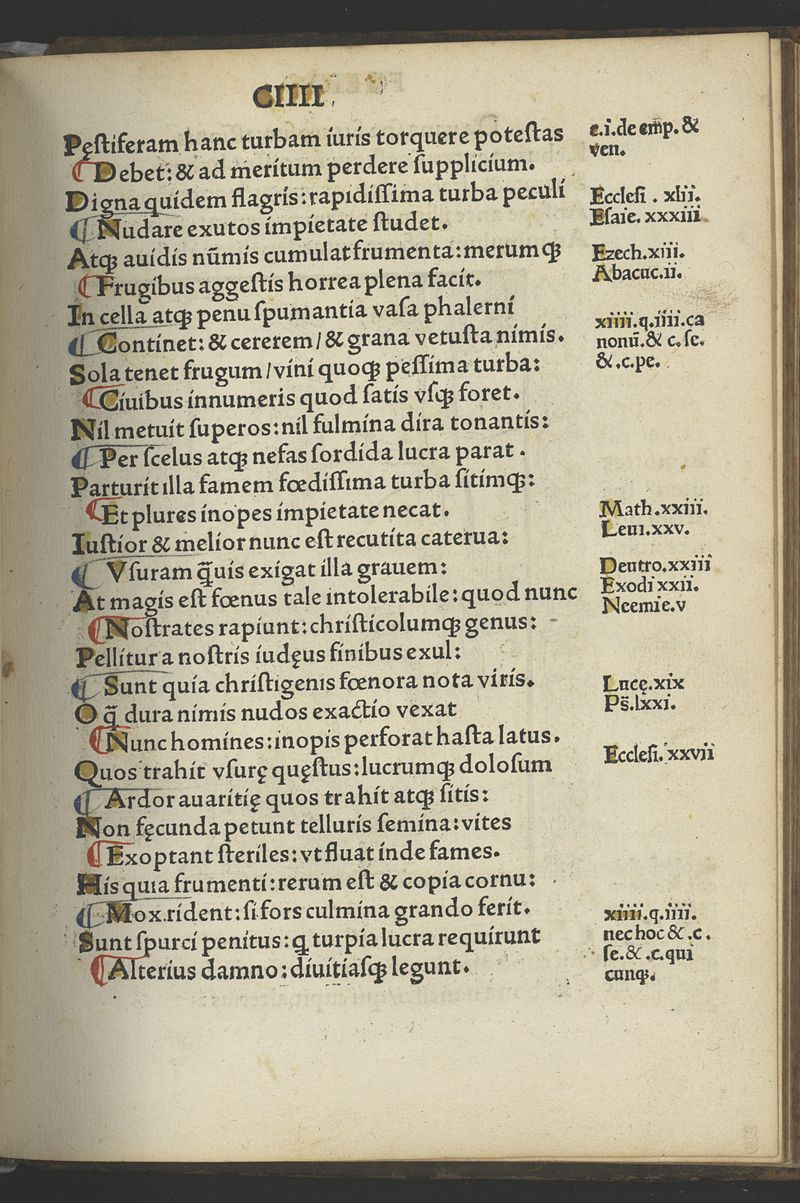 CIIII.
Pęſtiferam hanc turbam iuris torquere poteſtas
¶ Debet: & ad meritum perdere ſupplicium.
Digna quidem flagris: rapidiſſima turba peculi
¶ Nudare exutos impietate ſtudet.
Atqꝫ auidis nūmis cumulat frumenta: merumqꝫ
¶ Frugibus aggeſtis horrea plena facit.
In cella atqꝫ penu ſpumantia vaſa phalerni
¶ Continet: & cererem/ & grana vetuſta nimis.
Sola tenet frugum/ vini quoqꝫ peſſima turba:
¶ Ciuibus innumeris quod ſatis vſqꝫ foret.
Nil metuit ſuperos: nil fulmina dira tonantis:
¶ Per ſcelus atqꝫ nefas ſordida lucra parat.
Parturit illa famem fœdiſſima turba ſitimqꝫ:
¶ Et plures inopes impietate necat.
Iuſtior & melior nunc eſt recutita caterua:
¶ Vſuram q̄uis exigat illa grauem:
At magis eſt fœnus tale intolerabile: quod nunc
¶ Noſtrates rapiunt: chriſticolumqꝫ genus:
Pellitur a noſtris iudęus finibus exul:
¶ Sunt quia chriſtigenis fœnora nota viris.
O q̄ dura nimis nudos exactio vexat
¶ Nunc homines: inopis perforat haſta latus.
Quos trahit vſurę quęſtus: lucrumqꝫ doloſum
¶ Ardor auaritię quos trahit atqꝫ ſitis:
Non fęcunda petunt telluris ſemina: vites
¶ Exoptant ſteriles: vt fluat inde fames.
His quia frumenti: rerum eſt & copia cornu:
¶ Mox rident: ſi fors culmina grando ferit.
Sunt ſpurci penitus: ꝗ turpia lucra requirunt
¶ Alterius damno: diuitiaſqꝫ legunt.
c.i.de emp̄. &
ven.
Eccleſi . xlii.
Eſaie. xxxiii
Ezech.xiii.
Abacuc.ii.
xiiii.q.iiii.ca
nonū.& c. ſe.
&.c.pe.
Math.xxiii.
Leui.xxv.
Deutro.xxiii
Exodi xxii.
Neemie.v
Lucę.xix
Ps̄.lxxi.
Eccleſi.xxvii
xiiii.q.iiii.
nec hoc &.c.
ſe.&.c.qui
cunqꝫ.